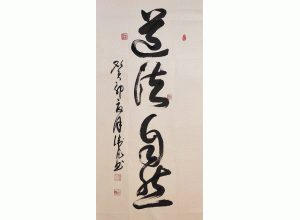 道法自然
癸卯夏月